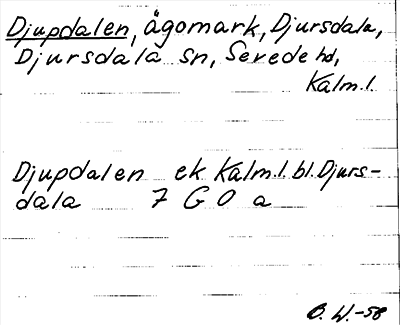 Djupdalen, ägomark, Djursdala,
Djursdala sn, Sevede hd,
Kalm.l.
Djupdalen ek Kalm.l. bl. Djurs-
dala 7 G 0 a
O. W.-58